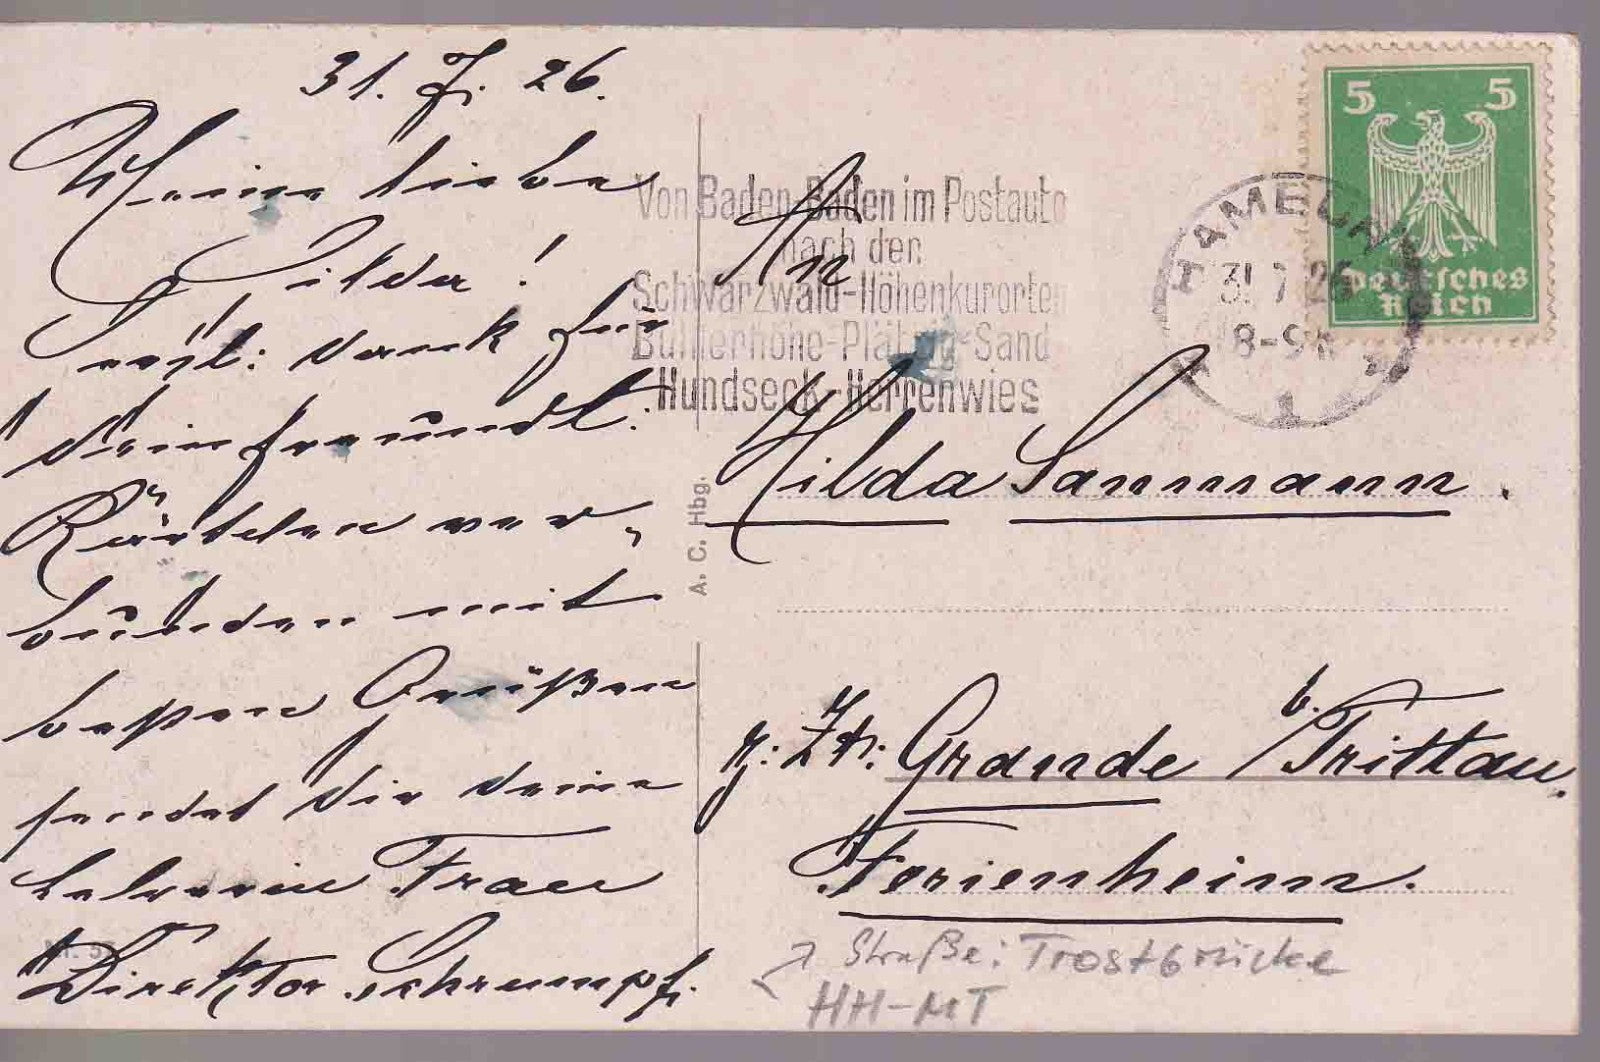 31. 7. 26.
Meine liebe
Hilda!
Hzl: Dank für
dein freundl.
Kärtchen ver-
bunden mit
besten Grüßen
sendet dir deine
Lehrerin Frau
Direktor Schrumpf.
A. C. Hbg.
Von Baden-Baden im Postauto
nach den
Schwarzwald-Höhenkurorten
Bühlerhöhe-Plättig-Sand
Hundseck-Herrenwies
5 5
Deutsches
Reich
HAMBURG
31.7.26
8-9N
1
An
Hilda Sanmann.
z. Zt: Grande b. Trittau.
Ferienheim.
Straße: Trostbrücke
HH-MT